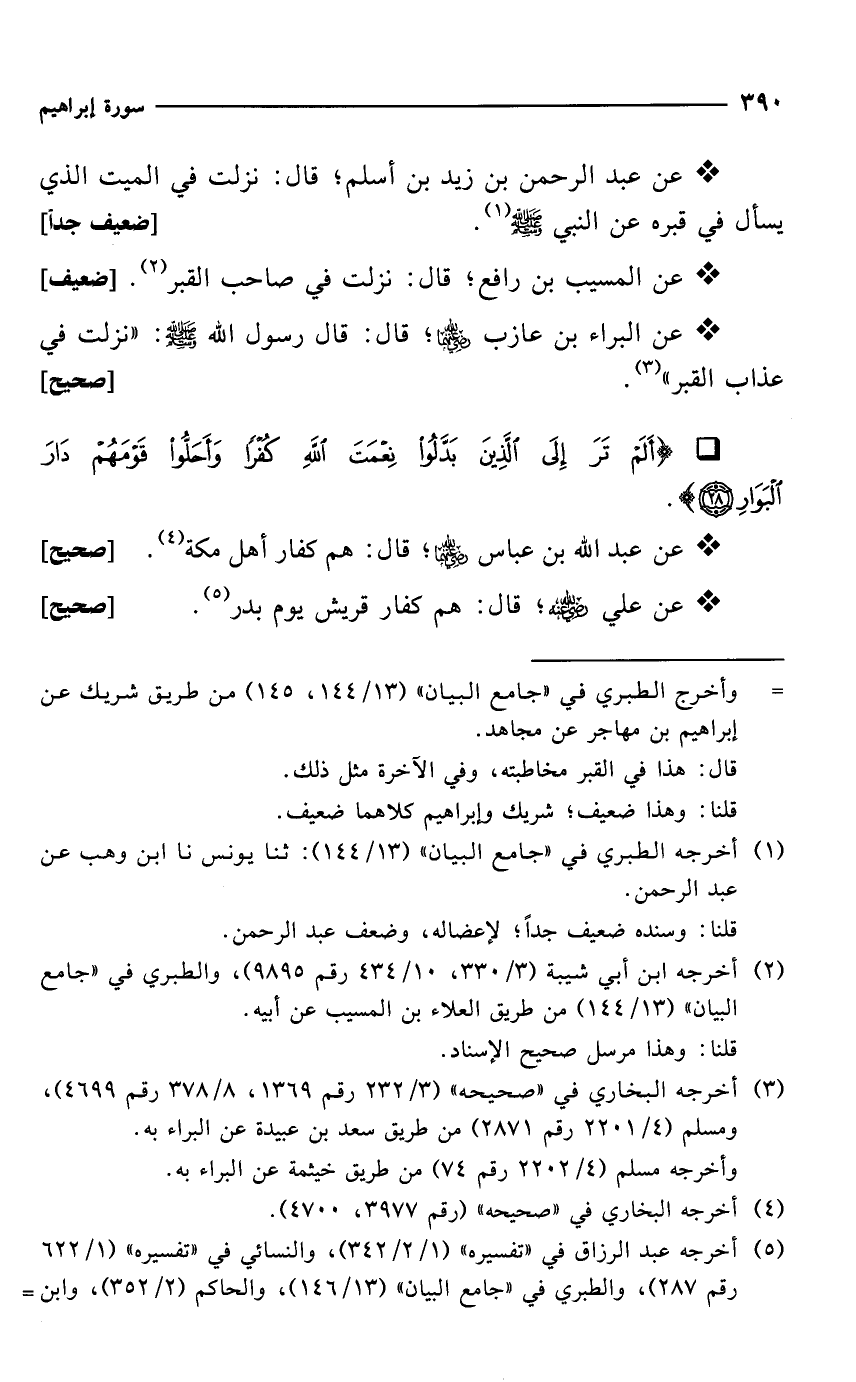 ٣٩٠ سورة إبراهيم
❖ عن عبد الرحمن بن زيد بن أسلم؛ قال: نزلت في الميت الذي
يسأل في قبره عن النبي ﷺ(١). [ضعيف جداً]
❖ عن المسيب بن رافع؛ قال: نزلت في صاحب القبر(٢). [ضعيف]
❖ عن البراء بن عازب رضي الله عنهما؛ قال: قال رسول الله ﷺ: «نزلت في
عذاب القبر»(٣). [صحيح]
❏ ﴿أَلَمْ تَرَ إِلَى ٱلَّذِينَ بَدَّلُوا۟ نِعْمَتَ ٱللَّهِ كُفْرًا وَأَحَلُّوا۟ قَوْمَهُمْ دَارَ
ٱلْبَوَارِ ٢٨﴾.
❖ عن عبد الله بن عباس رضي الله عنهما؛ قال: هم كفار أهل مكة(٤). [صحيح]
❖ عن علي رضي الله عنه؛ قال: هم كفار قريش يوم بدر(٥). [صحيح]
= وأخرج الطبري في «جامع البيان» (١٣/ ١٤٤، ١٤٥) من طريق شريك عن
إبراهيم بن مهاجر عن مجاهد.
قال: هذا في القبر مخاطبته، وفي الآخرة مثل ذلك.
قلنا: وهذا ضعيف؛ شريك وإبراهيم كلاهما ضعيف.
(١) أخرجه الطبري في «جامع البيان» (١٣/ ١٤٤): ثنا يونس نا ابن وهب عن
عبد الرحمن.
قلنا: وسنده ضعيف جداً؛ لإعضاله، وضعف عبد الرحمن.
(٢) أخرجه ابن أبي شيبة (٣/ ٣٣٠، ١٠/ ٤٣٤ رقم ٩٨٩٥)، والطبري في «جامع
البيان» (١٣/ ١٤٤) من طريق العلاء بن المسيب عن أبيه.
قلنا: وهذا مرسل صحيح الإسناد.
(٣) أخرجه البخاري في «صحيحه» (٣/ ٢٣٢ رقم ١٣٦٩، ٨/ ٣٧٨ رقم ٤٦٩٩)،
ومسلم (٤/ ٢٢٠١ رقم ٢٨٧١) من طريق سعد بن عبيدة عن البراء به.
وأخرجه مسلم (٤/ ٢٢٠٢ رقم ٧٤) من طريق خيثمة عن البراء به.
(٤) أخرجه البخاري في «صحيحه» (رقم ٣٩٧٧، ٤٧٠٠).
(٥) أخرجه عبد الرزاق في «تفسيره» (١/ ٢/ ٣٤٢)، والنسائي في «تفسيره» (١/ ٦٢٢
رقم ٢٨٧)، والطبري في «جامع البيان» (١٣/ ١٤٦)، والحاكم (٢/ ٣٥٢)، وابن =